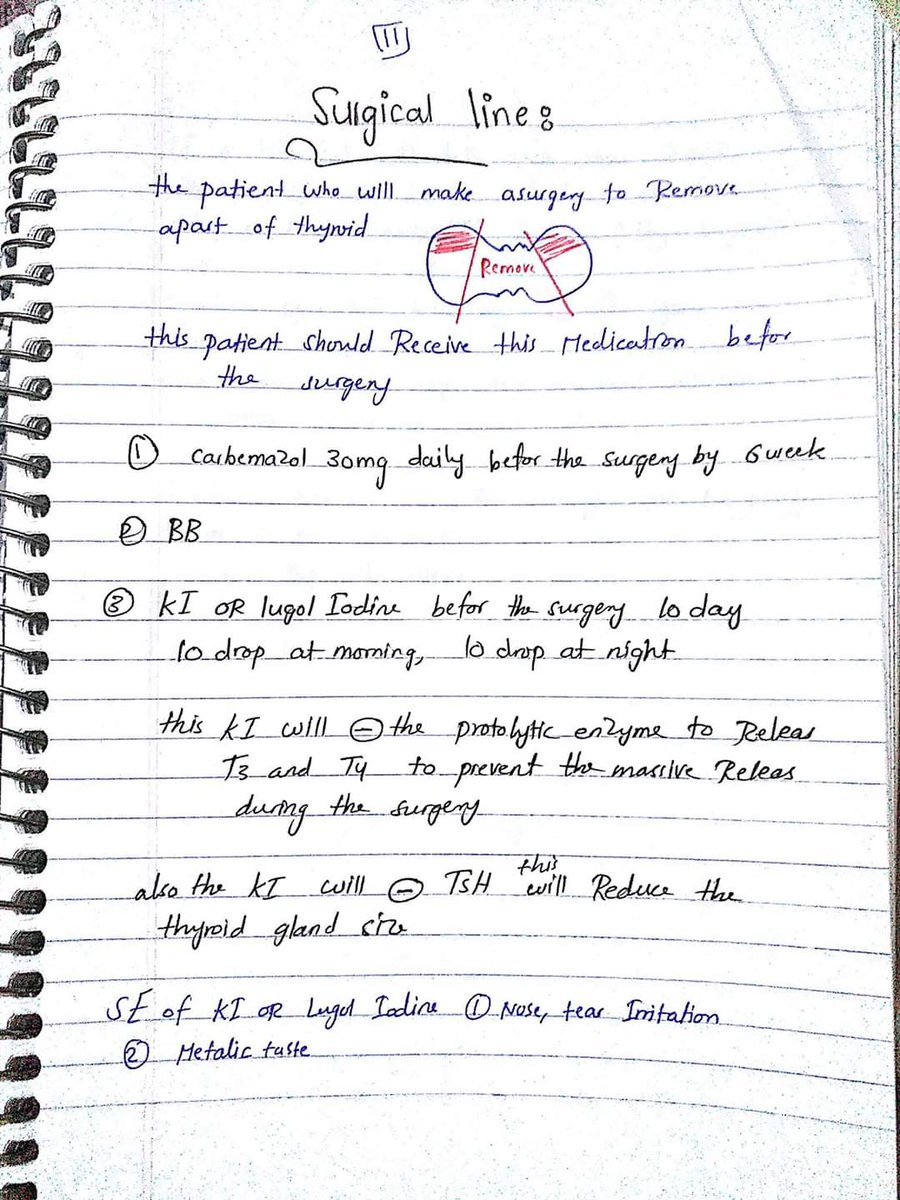 11
Surgical line:
the patient who will make asurgery to Remove
apart of thyroid
Remove
this patient should Receive this Medication befor
the surgery
① Carbemazol 30mg daily befor the surgery by 6 week
② BB
③ KI OR lugol Iodine befor the surgery 10 day
10 drop at morning, 10 drop at night
this KI will ⊖ the protolytic enzyme to Releas
T3 and T4 to prevent the massive Releas
during the surgery
also the KI will ⊖ TSH this will Reduce the
thyroid gland size
SE of KI OR Lugol Iodine ① Nose, tear Irritation
② Metalic taste